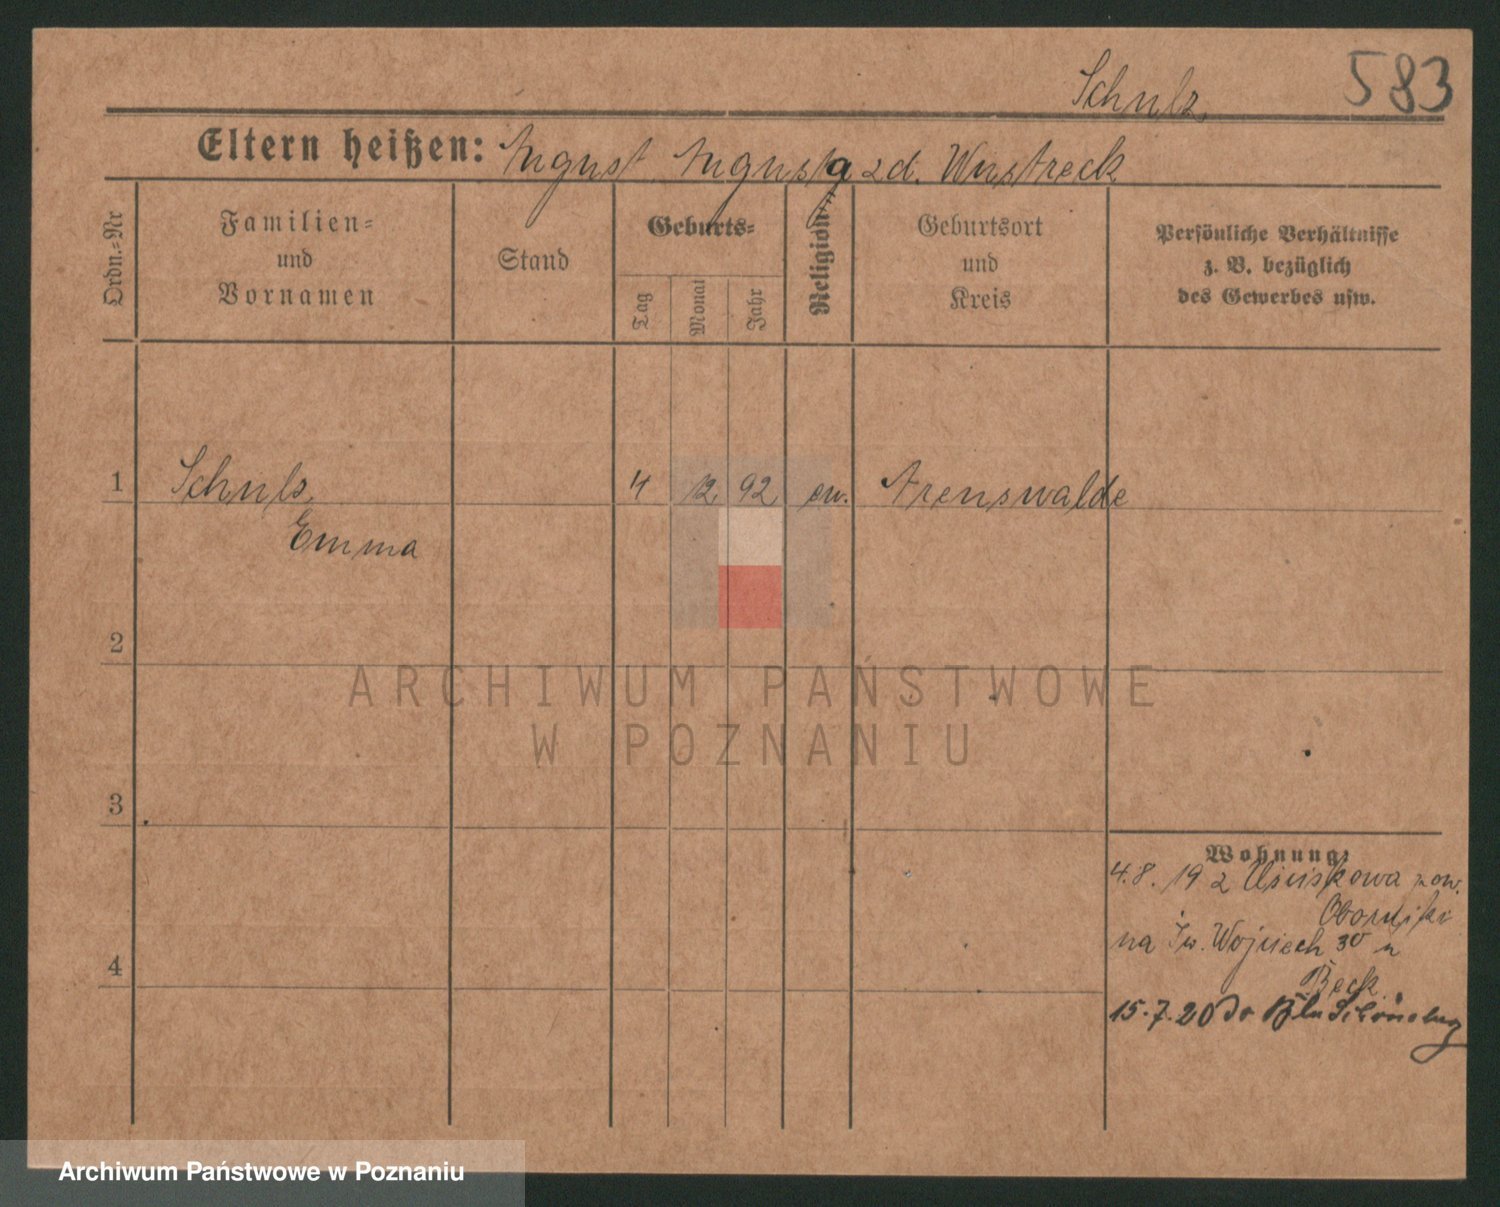 Schulz
583
Eltern heißen: August Augusta zd. Wustreck
Ordn.=Nr
Familien=
und
Vornamen
Stand
Geburts=
Tag
Monat
Jahr
Religion
Geburtsort
und
Kreis
Persönliche Verhältnisse
z. B. bezüglich
des Gewerbes usw.
1
Schulz
4 12. 92 ew. Arenswalde
Emma
2
ARCHIWUM PAŃSTWOWE
W POZNANIU
3
Wohnung:
4.8. 19 z Uściskowa pow.
Oborniki
na Św. Wojciech 30 u
4
Beck
15.7.20 do Bln Schöneberg
Archiwum Państwowe w Poznaniu